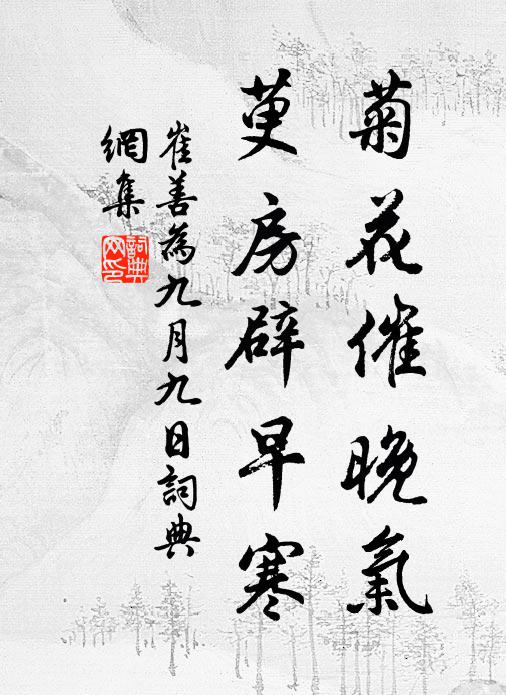 菊花催晚氣
萸房辟早寒
崔善為九月九日詞典
網集
詞典網印